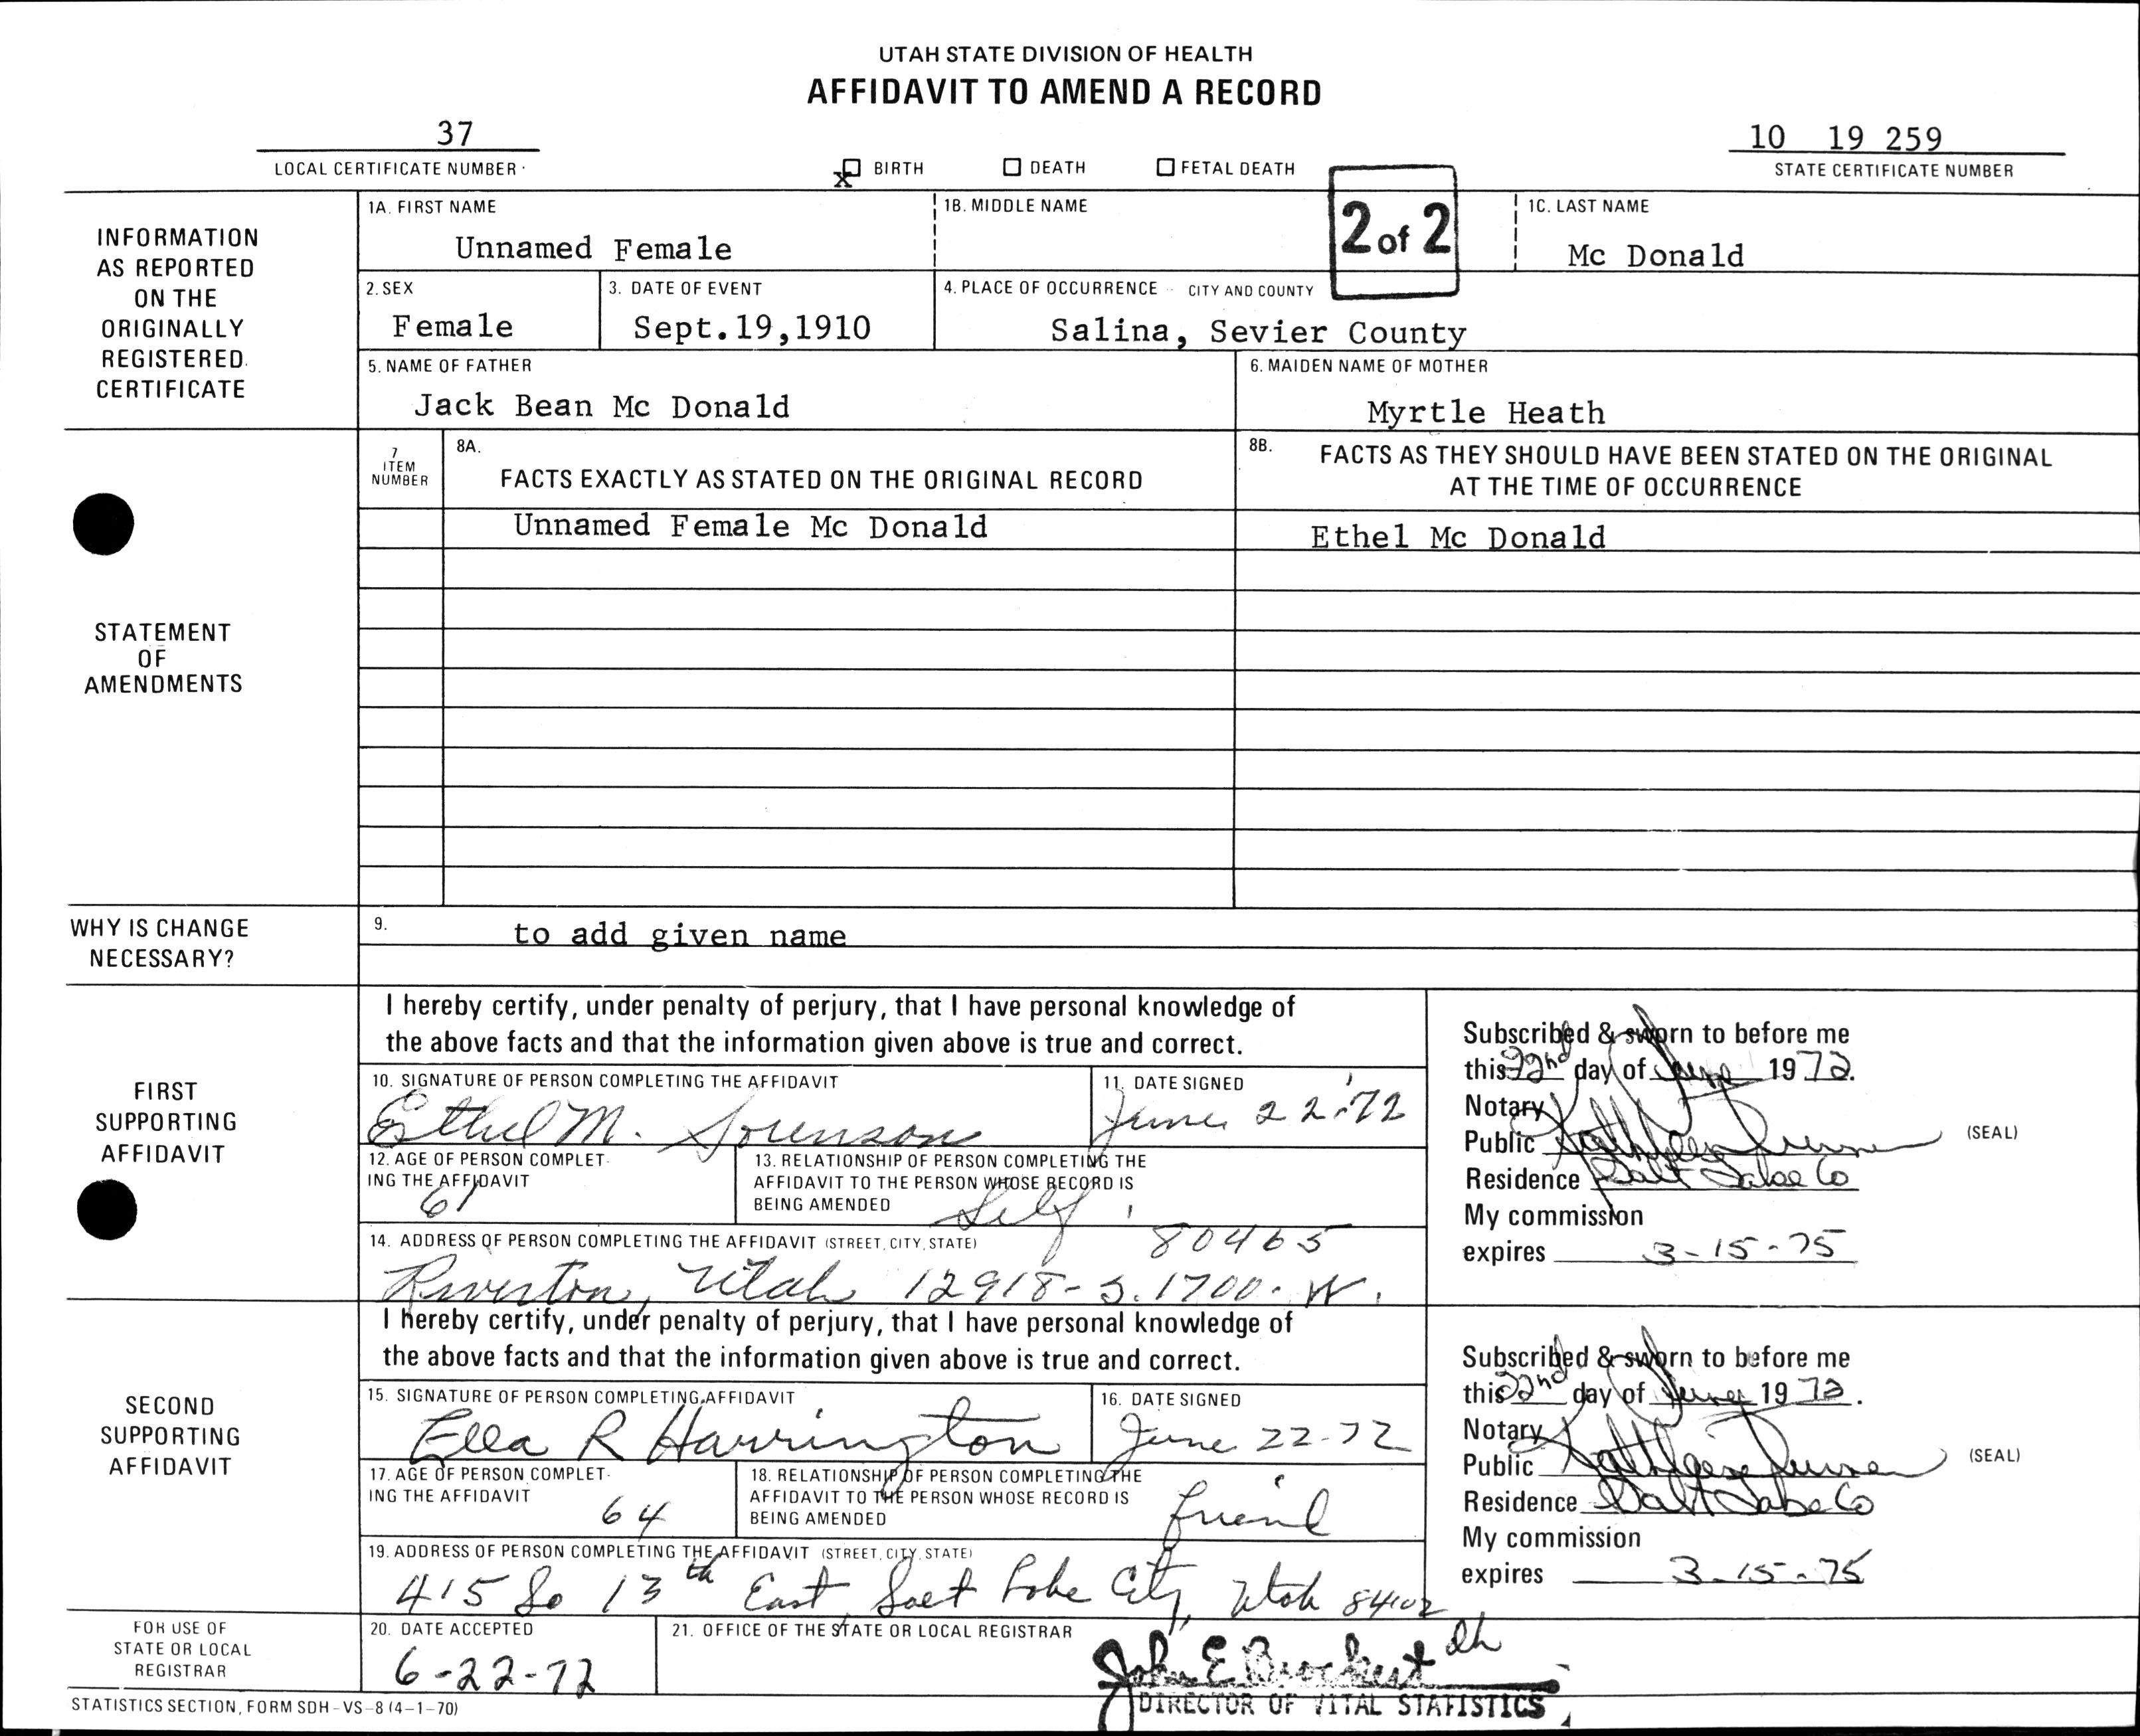 UTAH STATE DIVISION OF HEALTH
AFFIDAVIT TO AMEND A RECORD
37
LOCAL CERTIFICATE NUMBER
x BIRTH DEATH FETAL DEATH
10 19 259
STATE CERTIFICATE NUMBER
2 of 2
INFORMATION
AS REPORTED
ON THE
ORIGINALLY
REGISTERED
CERTIFICATE
1A. FIRST NAME 1B. MIDDLE NAME 1C. LAST NAME
Unnamed Female Mc Donald
2. SEX 3. DATE OF EVENT 4. PLACE OF OCCURRENCE CITY AND COUNTY
Female Sept.19,1910 Salina, Sevier County
5. NAME OF FATHER 6. MAIDEN NAME OF MOTHER
Jack Bean Mc Donald Myrtle Heath
STATEMENT
OF
AMENDMENTS
7
ITEM
NUMBER
8A.
FACTS EXACTLY AS STATED ON THE ORIGINAL RECORD
8B. FACTS AS THEY SHOULD HAVE BEEN STATED ON THE ORIGINAL
AT THE TIME OF OCCURRENCE
Unnamed Female Mc Donald Ethel Mc Donald
WHY IS CHANGE
NECESSARY?
9. to add given name
FIRST
SUPPORTING
AFFIDAVIT
I hereby certify, under penalty of perjury, that I have personal knowledge of
the above facts and that the information given above is true and correct.
10. SIGNATURE OF PERSON COMPLETING THE AFFIDAVIT 11. DATE SIGNED
Ethel M. Sorenson June 22-'72
12. AGE OF PERSON COMPLET-
ING THE AFFIDAVIT
61
13. RELATIONSHIP OF PERSON COMPLETING THE
AFFIDAVIT TO THE PERSON WHOSE RECORD IS
BEING AMENDED Self
14. ADDRESS OF PERSON COMPLETING THE AFFIDAVIT (STREET, CITY, STATE) 80465
Riverton, Utah 12918-S. 1700-W.
Subscribed & sworn to before me
this 22nd day of June 1972.
Notary
Public Kathleen (SEAL)
Residence Salt Lake Co
My commission
expires 3-15-75
SECOND
SUPPORTING
AFFIDAVIT
I hereby certify, under penalty of perjury, that I have personal knowledge of
the above facts and that the information given above is true and correct.
15. SIGNATURE OF PERSON COMPLETING AFFIDAVIT 16. DATE SIGNED
Ella R Harrington June 22-72
17. AGE OF PERSON COMPLET-
ING THE AFFIDAVIT
64
18. RELATIONSHIP OF PERSON COMPLETING THE
AFFIDAVIT TO THE PERSON WHOSE RECORD IS
BEING AMENDED friend
19. ADDRESS OF PERSON COMPLETING THE AFFIDAVIT (STREET, CITY, STATE)
415 So 13th East, Salt Lake City, Utah 84102
Subscribed & sworn to before me
this 22nd day of June 1972.
Notary
Public Kathleen (SEAL)
Residence Salt Lake Co
My commission
expires 3-15-75
FOR USE OF
STATE OR LOCAL
REGISTRAR
20. DATE ACCEPTED 21. OFFICE OF THE STATE OR LOCAL REGISTRAR
6-22-72 John E Brockert dh
DIRECTOR OF VITAL STATISTICS
STATISTICS SECTION, FORM SDH-VS-8 (4-1-70)